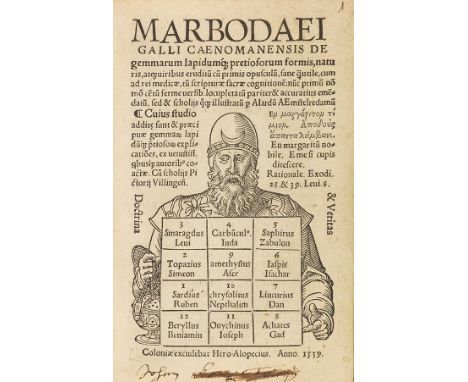 1
MARBODAEI
GALLI CAENOMANENSIS DE
gemmarum lapidumq́; pretiosorum formis, natu
ris, atq; uiribus eruditũ cũ primis opusculũ, sane q̃ utile, cum
ad rei medicæ, tũ scripturæ sacræ cognitionẽ: nũc primũ nõ
mõ cẽtũ ferme versib. locupletatũ pariter & accuratius emẽ-
datũ. sed & scholijs q̃q; illustratũ p Alardũ AEmstelredamũ
¶ Cuius studio
additę sunt & præci
puæ gemmarũ lapi
dũq́; ptiosorũ explic
atiões, ex uetustiss.
quibusq; autoribus co-
actæ. Cũ scholijs Pi
ctorij Villingeñ.
μαργάριτομ τί
μιομ. Αποδοὺς
ἅπαντα λάμβαν.
En margaritũ no-
bile, Eme si cupis
ditescere.
Rationale. Exodi.
28 & 39. Leui. 8.
Doctrina
& Veritas
3 Smaragdus Leui
4 Carbũculꝰ. Iuda
5 Saphirus Zabulon
2 Topazius Simeon
9 amethystus Aser
6 Iaspis Isachar
1 Sardius Ruben
10 chrysolitus Nepthalim
7 Lincurius Dan
12 Beryllus Beniamin
11 Onychinus Ioseph
8 Achates Gad
Coloniæ excudebat Hero Alopecius. Anno. 1539.